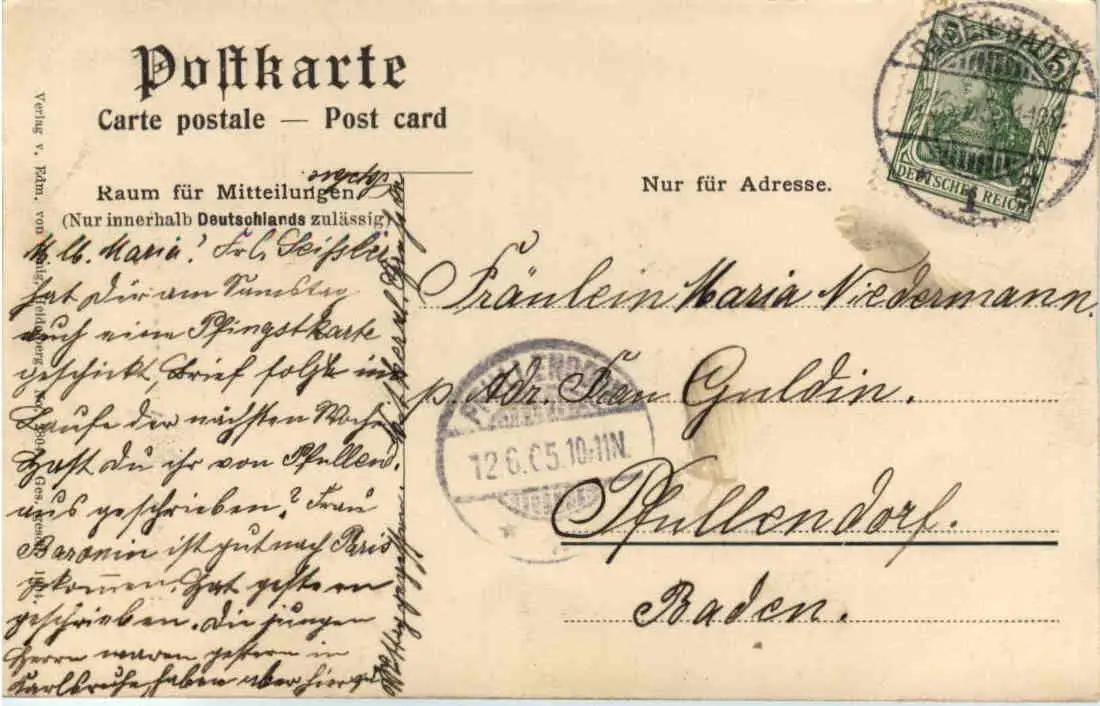 Postkarte
Carte postale — Post card
Raum für Mitteilungen
(Nur innerhalb Deutschlands zulässig)
Nur für Adresse.
Verlag v. Edm. von König, Heidelberg
Ges. gesch. 1904.
DEUTSCHES REICH
5
BADEN-BADEN
1
M. lb. Maria! Frl.
hat Dir am Samstag
auch eine Pfingstkarte
geschickt, Brief folgt im
Laufe der nächsten Woche
Hast Du ihr von Pfullend.
aus geschrieben? Frau
Baronin ist gut nach Paris
gekommen. Hat gestern
geschrieben. Die jungen
Herrn waren gestern in
Karlsruhe, haben aber hier zu
Mittag gegessen.
Fräulein Maria Niedermann.
p. Adr. Frau Guldin.
Pfullendorf.
Baden.
PFULLENDORF
12.6.05.10-11N.